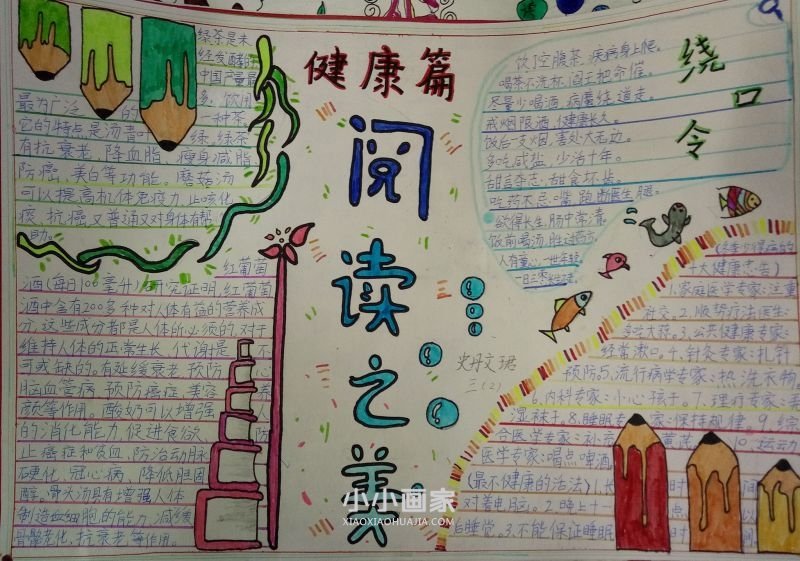 绿茶是未
经发酵的
中国产量最
最为广泛的 多,饮用
一种茶,
它的特点是汤青叶绿,绿茶
有抗衰老,降血脂,瘦身减脂
防癌,美白等功能。蘑菇汤
可以提高机体免疫力,止咳化
痰,抗癌又普通又对身体有帮
助。
红葡萄
酒(每日100毫升)研究证明,红葡萄
酒中含有200多种对人体有益的营养成
分,这些成分都是人体所必须的,对于
维持人体的正常生长,代谢是不
可或缺的。有延缓衰老,预防心
脑血管病,预防癌症,美容养
颜等作用。酸奶可以增强
的消化能力,促进食欲,防
止癌症和贫血,防治动脉
硬化,冠心病,降低胆固
醇。骨头汤具有增强人体
制造血细胞的能力,减缓
骨骼老化,抗衰老等作用。
健康篇
阅读之美
三
史丹文珺
三(2)
绕口令
饮了空腹茶,疾病身上爬。
喝茶不洗杯,阎王把命催。
尽量少喝酒,病魔绕道走。
戒烟限酒,健康长久。
饭后一支烟,害处大无边。
多吃咸盐,少活十年。
甜言夺志,甜食坏齿。
吃药不忌嘴,跑断医生腿。
欲得长生,肠中常清。
饭前喝汤,胜过药方。
人有童心,一世年轻。
十大健康忠告)
1.家庭医学专家:注重
社交。2.顺势疗法医生:
多吃大蒜。3.公共健康专家:
经常漱口。4.针灸专家:扎针
预防。5.流行病学专家:热洗衣物
6.内科专家:小心孩子。7.理疗专家:
湿袜子。8.睡眠专家:保持规律。9.综
合医学专家:补充 黄芪 10.运动
医学专家:喝点啤酒
(最不健康的活法)1.长 时 间
对着电脑。2.晚上十 点
睡觉。3.不能保证睡眠
小小画家
XIAOXIAOHUAJIA.COM